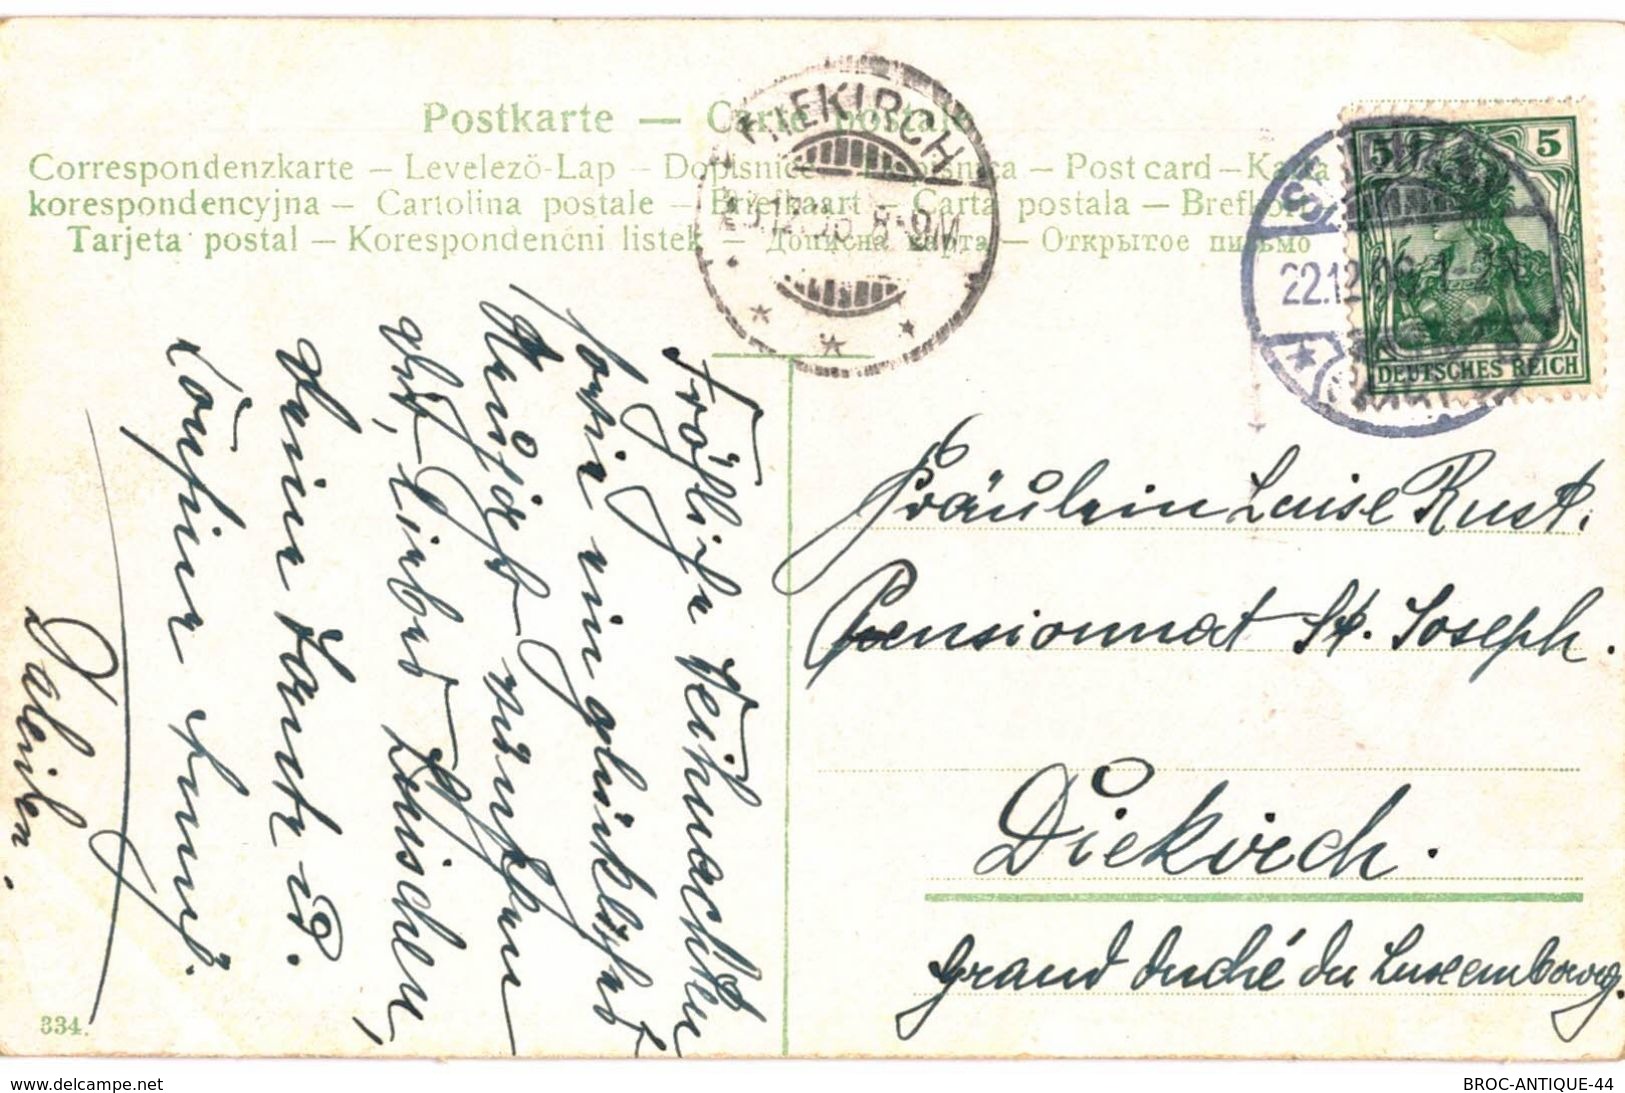 Postkarte — Carte postale
Correspondenzkarte – Levelező-Lap – Dopisnice – Dopisnica – Post card – Karta
korespondencyjna – Cartolina postale – Briefkaart – Carta postala – Brefkort
Tarjeta postal – Korespondenčni listek – Дописна карта – Открытое письмо
DIEKIRCH
12.06 8-9
22.12.06. 1-2
5 5
DEUTSCHES REICH
Fräulein Luise Rust.
Pensionnat St. Joseph.
Diekirch.
Grand duché du Luxembourg.
Fröhliche Weihnachten
sowie ein glückliches
Neujahr wünschen
dir, liebes Luischen,
deine Tante u.
Cousine
334.
www.delcampe.net
BROC-ANTIQUE-44